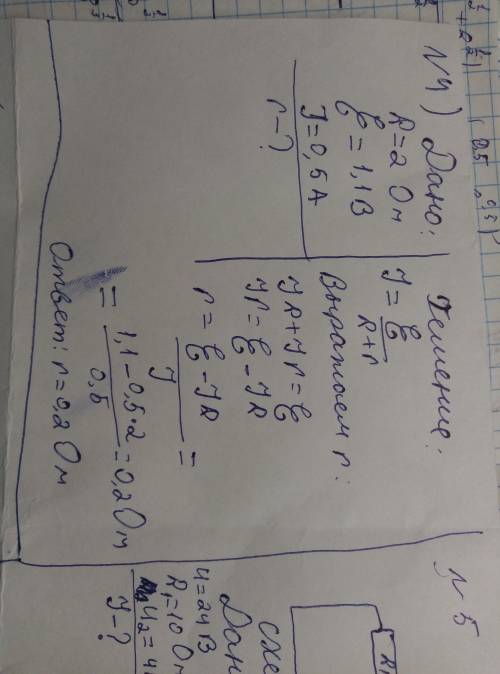 №4) Дано:
R=2 Ом
ℰ=1,1В
J=0,5А
r-?
Решение:
J = ℰ / R+r
Выражаем r:
JR+Jr=ℰ
Jr=ℰ-JR
r= ℰ-JR / J =
= 1,1-0,5·2 / 0,5 =0,2Ом
Ответ: r=0,2 Ом
№5
R1
схе
Дан
U=24В
R1=10 Ом
U2=4
J-?